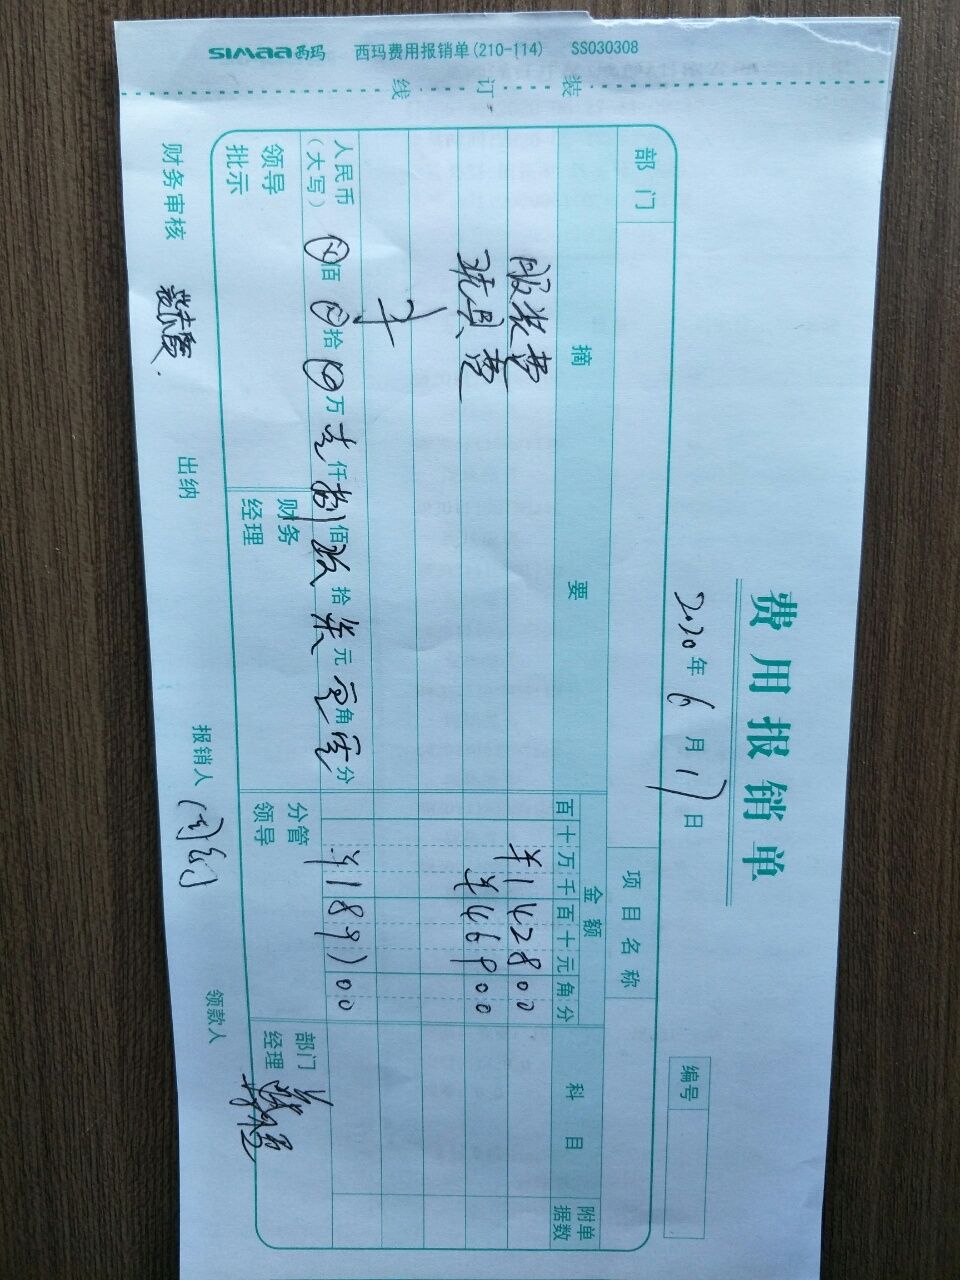 SIMAA西玛 西玛费用报销单(210-114) SS030308
装 订 线
费用报销单
2020年6月17日
编号
部门 项目名称
摘要 金额 科目 附单据数
百十万千百十元角分
服装费 ¥142800
玩具费 ¥46900
人民币(大写) ⊗佰⊗拾⊗万壹仟捌佰玖拾柒元零角零分 ¥189700
领导批示 财务经理 分管领导 部门经理
财务审核 出纳 报销人 领款人